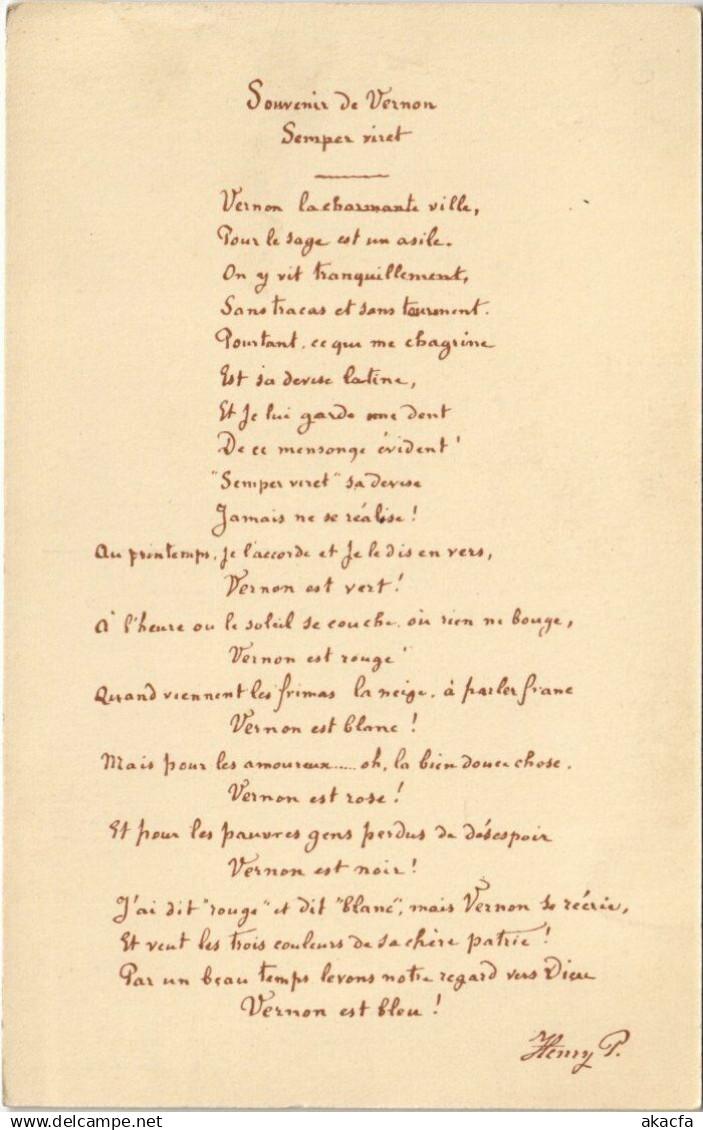 Souvenir de Vernon
Semper viret
Vernon la charmante ville,
Pour le sage est un asile.
On y vit tranquillement,
Sans tracas et sans tourment.
Pourtant, ce qui me chagrine
Est sa devise latine,
Et Je lui garde une dent
De ce mensonge évident !
"Semper viret" sa devise
Jamais ne se réalise !
Au printemps, Je l'accorde et Je le dis en vers,
Vernon est vert !
A l'heure ou le soleil se couche, où rien ne bouge,
Vernon est rouge !
Quand viennent les frimas la neige, à parler franc
Vernon est blanc !
Mais pour les amoureux..... oh, la bien douce chose,
Vernon est rose !
Et pour les pauvres gens perdus de désespoir
Vernon est noir !
J'ai dit "rouge" et dit "blanc", mais Vernon se récrie,
Et veut les trois couleurs de sa chère patrie !
Par un beau temps levons notre regard vers Dieu
Vernon est bleu !
Henry P.
akacfa